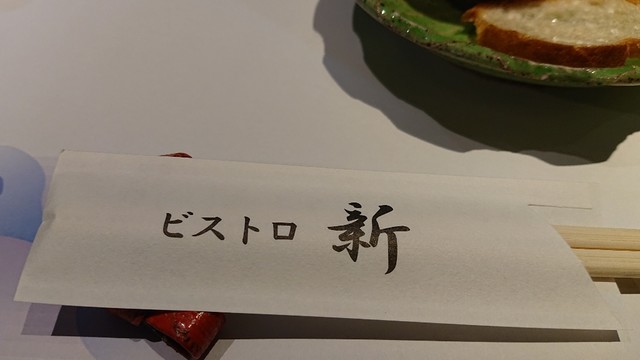 ビストロ 新